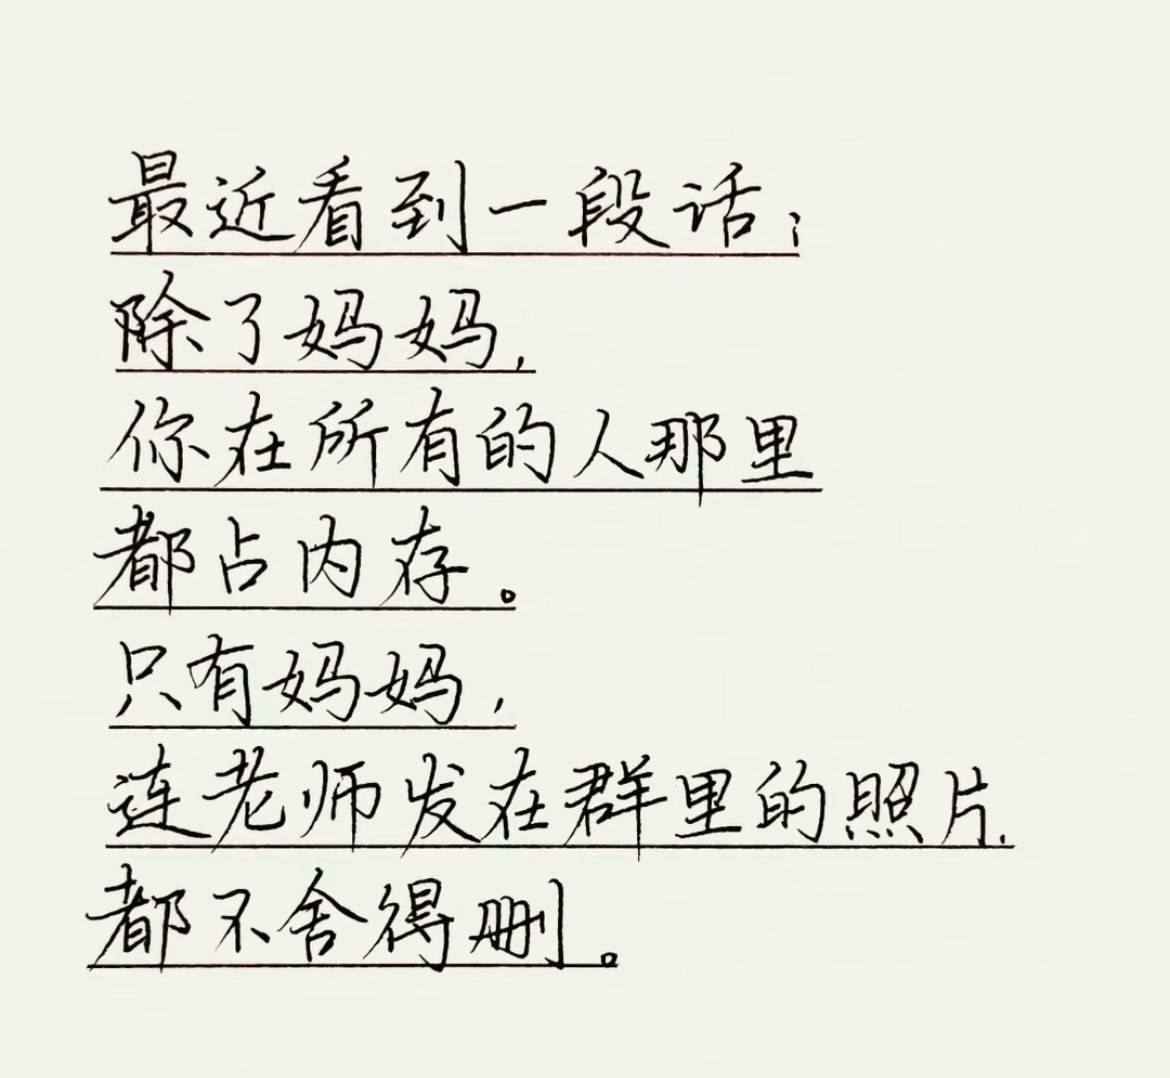 最近看到一段话；
除了妈妈，
你在所有的人那里
都占内存。
只有妈妈，
连老师发在群里的照片，
都不舍得删。